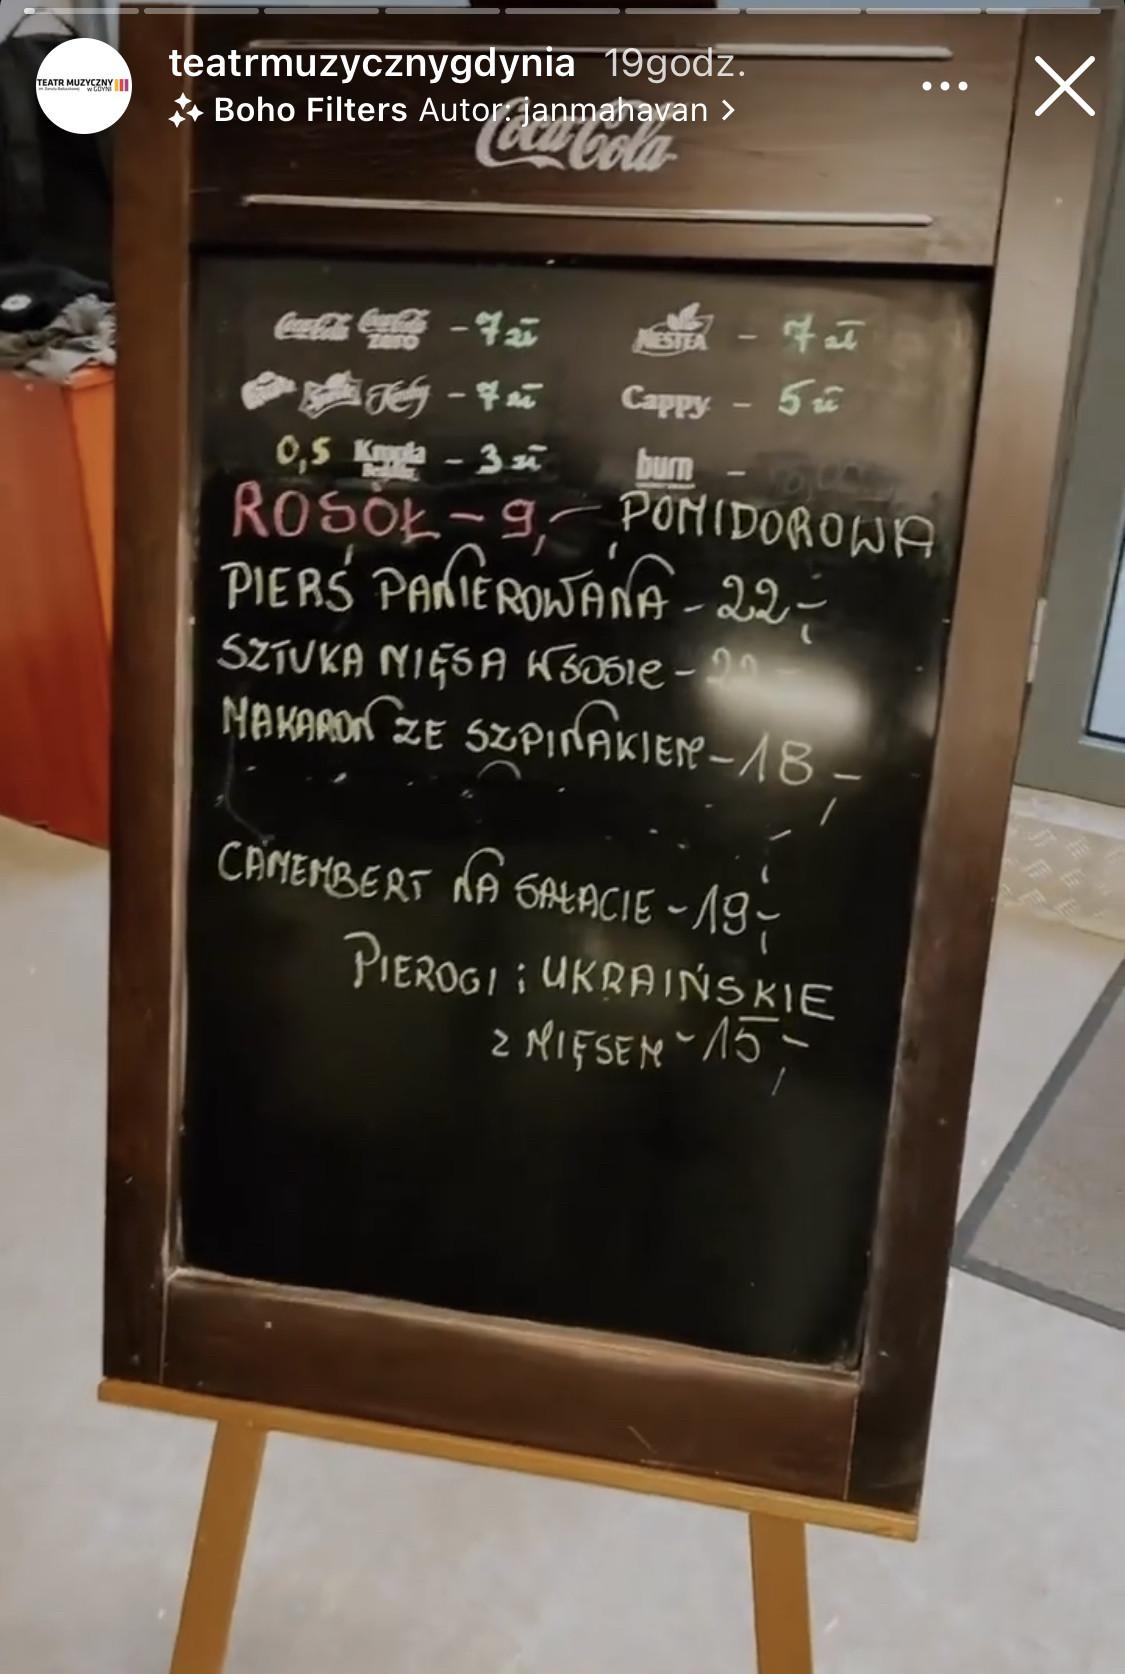 teatrmuzycznygdynia 19godz.
TEATR MUZYCZNY
W GDYNI
Boho Filters Autor: janmahavan >
Coca-Cola
Coca-Cola Coca-Cola zero - 7 zł
NESTEA - 7 zł
Fanta Sprite Kinley - 7 zł
Cappy - 5 zł
0,5 Kropla Beskidu - 3 zł
burn -
ROSÓŁ - 9,- POMIDOROWA
PIERŚ PANIEROWANA - 22,-
SZTUKA MIĘSA W SOSIE - 22,-
MAKARON ZE SZPINAKIEM - 18,-
CAMEMBERT NA SAŁACIE - 19,-
PIEROGI : UKRAIŃSKIE
Z MIĘSEM - 15,-